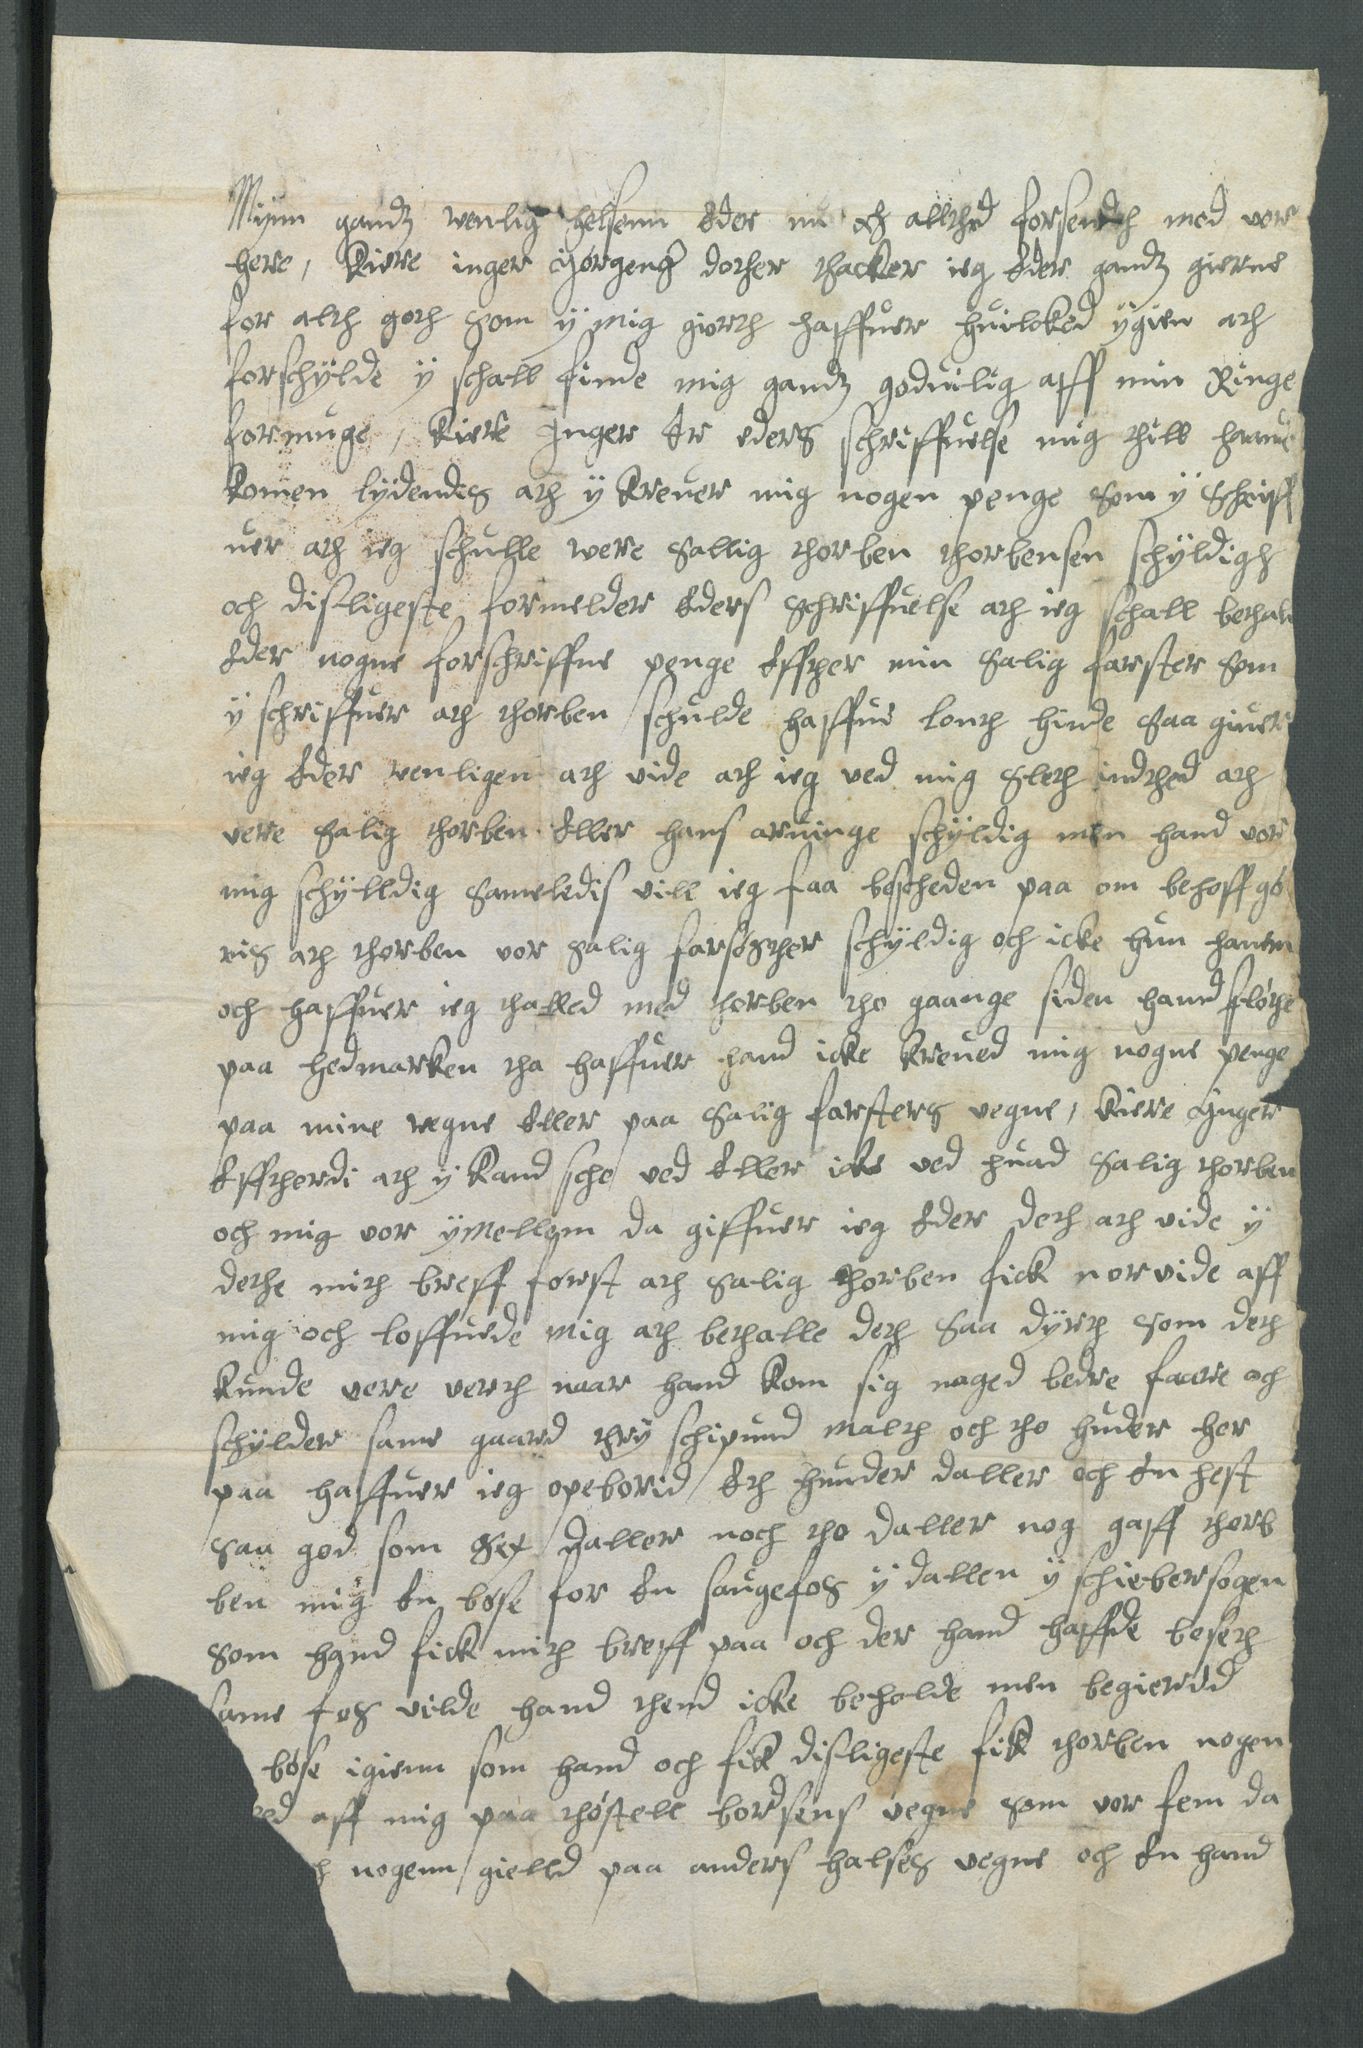 Mynn gandz wenlig helsenn Eder nu och allthid forsendth med vor
here, Kiere inger Jørgensd dother thacker ieg Eder gandz gierne
for alth goth som ÿ mig giorth haffuer huilcked ÿgien ath
forschÿlde ÿ schall finde mig gandz goduilig aff min Ringe
formuge, Kiere Inger Er eders schriffuelse mig thill haande
komen lydendes ath ÿ kreuer mig nogen penge som ÿ schriff
uer ath ieg schulle were sallig thorben thorbensen schÿldigh
och disligeste formelder Eders schriffuelse ath ieg schall bethale
Eder nogne forschriffne penge Effther min salig farster som
ÿ schriffuer ath thorben schulde haffue lonth hinde saa giuer
ieg Eder venligen ath vide ath ieg ved mig sleth indthed ath
vere salig thorben Eller hans aruinge schÿldig men hand vor
mig schÿlldig sameledis vill ieg faa bescheden paa om behoff gø
ris ath thorben vor salig farsøsther schÿldig och icke hun hanem
och haffuer ieg thalled med thorben tho gaange siden hannd fløthe
paa hedmarken tha haffuer hand icke kreued mig nogne penge
paa mine vegne Eller paa salig farsters vegne, Kiere Inger
Efftherdi ath ÿ kand sche ved Eller icke ved huad salig thorben
och mig vor ÿmellom da giffuer ieg Eder deth ath vide ÿ
dethe mith breff først ath salig thorben fick noruide aff
mig och loffuede mig ath bethalle deth saa dÿrth som deth
kunde vere verth naar hand kom sig noged bedre faare och
schÿlder same gaard thrÿ schipund malth och tho huder her
paa haffuer ieg opeborid Eth hunder daller och En hest
saa god som sex daller noch tho daller nog gaff thorb
ben mig En bøse for En saugefos ÿ dallen ÿ schiebersogen
som hand fick mith breff paa och der hand haffde beseth
same fos vilde hand thend icke beholde men begierdd
bøse igienn som hand och fik disligeste fik thorben nogen
aff mig paa thøstell bordsens vegne som vor fem da
nogenn gielld paa anders halses vegne och En hand